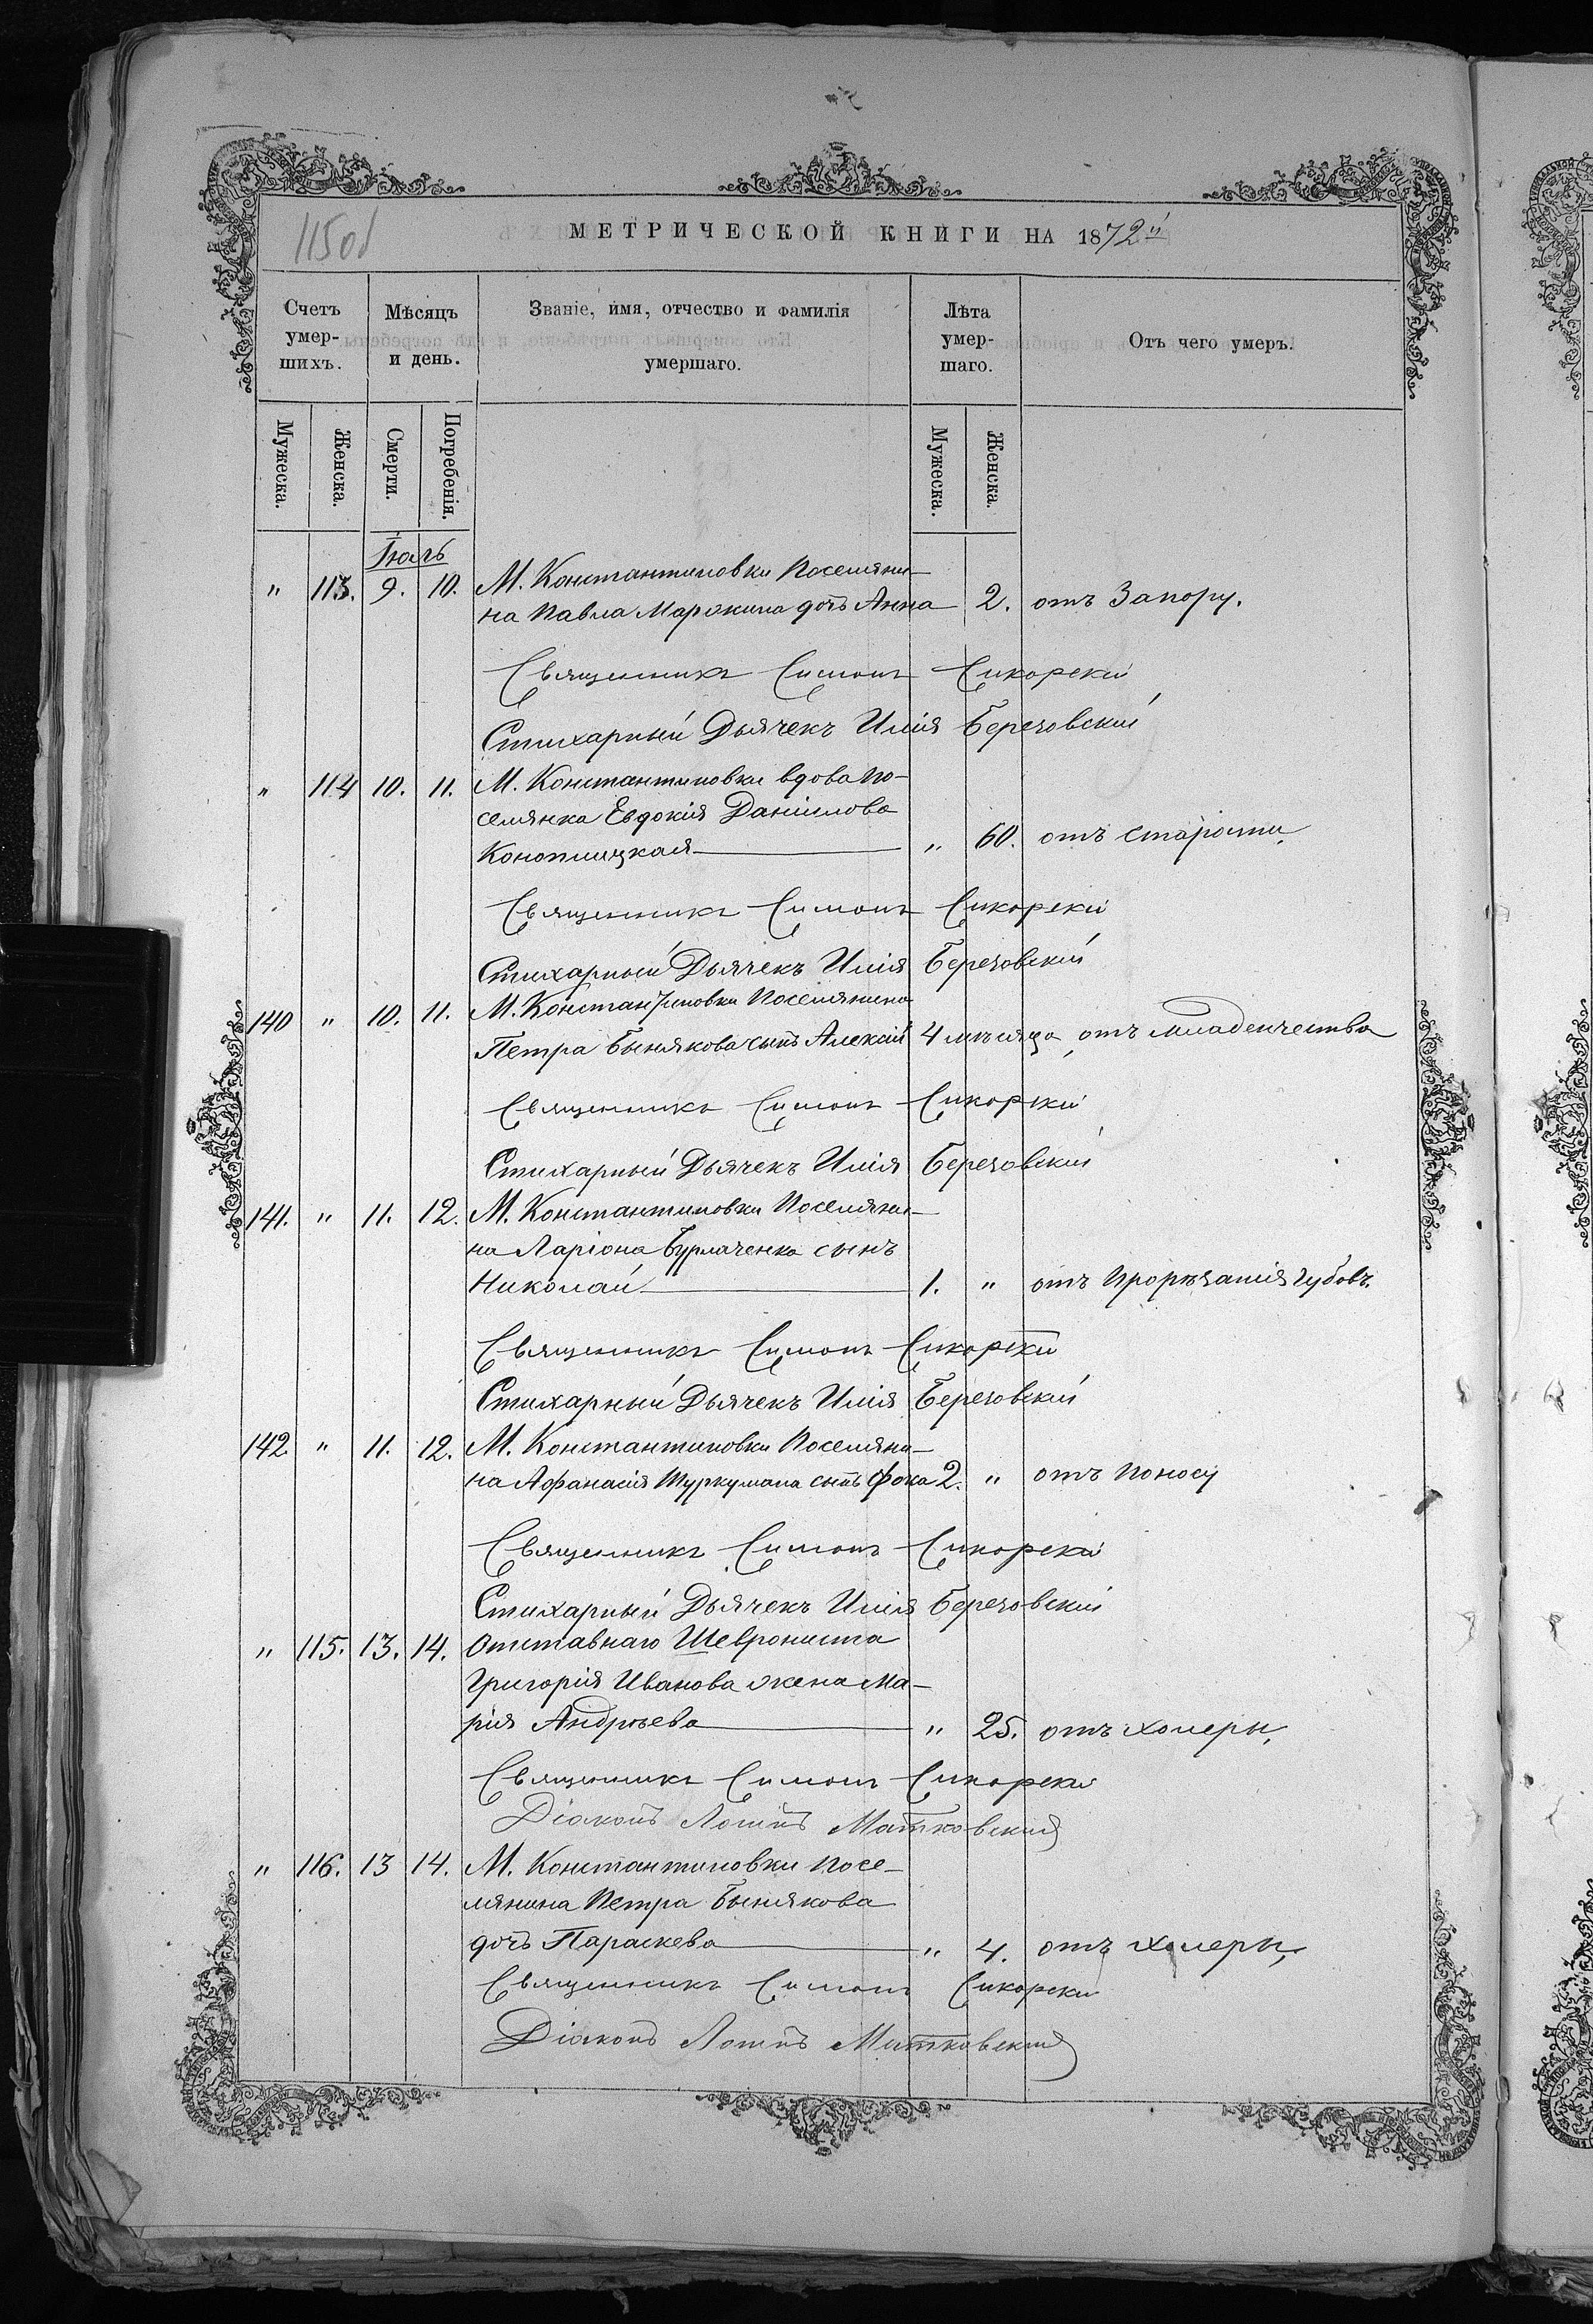 1150б
МЕТРИЧЕСКОЙ КНИГИ НА 1872й
Счетъ умер-шихъ. Мѣсяцъ и день. Званіе, имя, отчество и фамилія умершаго. Лѣта умер-шаго. Отъ чего умеръ.
Мужеска. Женска. Смерти. Погребенія. Мужеска. Женска.
Іюль
" 113. 9. 10. М. Константиновки Поселяни-
на Павла Марокина дочь Анна 2. отъ Запору.
Священникъ Симонъ Сикорскій
Стихарный Дьячекъ Илія Березовскій
" 114 10. 11. М. Константиновки вдова по-
селянка Евдокія Даніилова
Конотицкая " 60. отъ старости,
Священникъ Симонъ Сикорскій
Стихарный Дьячекъ Илія Березовскій
140 " 10. 11. М. Константиновки Поселянина
Петра Бынякова сынъ Алексій 4 мѣсяца отъ младенчества
Священникъ Симонъ Сикорскій
Стихарный Дьячекъ Илія Березовскій
141. " 11. 12. М. Константиновки Поселяни-
на Ларіона Бурлаченка сынъ
Николай 1. " отъ прорѣзанія зубовъ.
Священникъ Симонъ Сикорскій
Стихарный Дьячекъ Илія Березовскій
142. " 11. 12. М. Константиновки Поселяни-
на Афанасія Туркумана сынъ Фока 2. " отъ поносу
Священникъ Симонъ Сикорскій
Стихарный Дьячекъ Илія Березовскій
" 115. 13. 14. Отставнаго Шеврониста
Григорія Иванова жена Ма-
рія Андреева " 25. отъ холеры,
Священникъ Симонъ Сикорскій
Діаконъ Матковскій
" 116. 13 14. М. Константиновки посе-
лянина Петра Бынякова
дочь Параскева " 4. отъ холеры,
Священникъ Симонъ Сикорскій
Діаконъ Матковскій